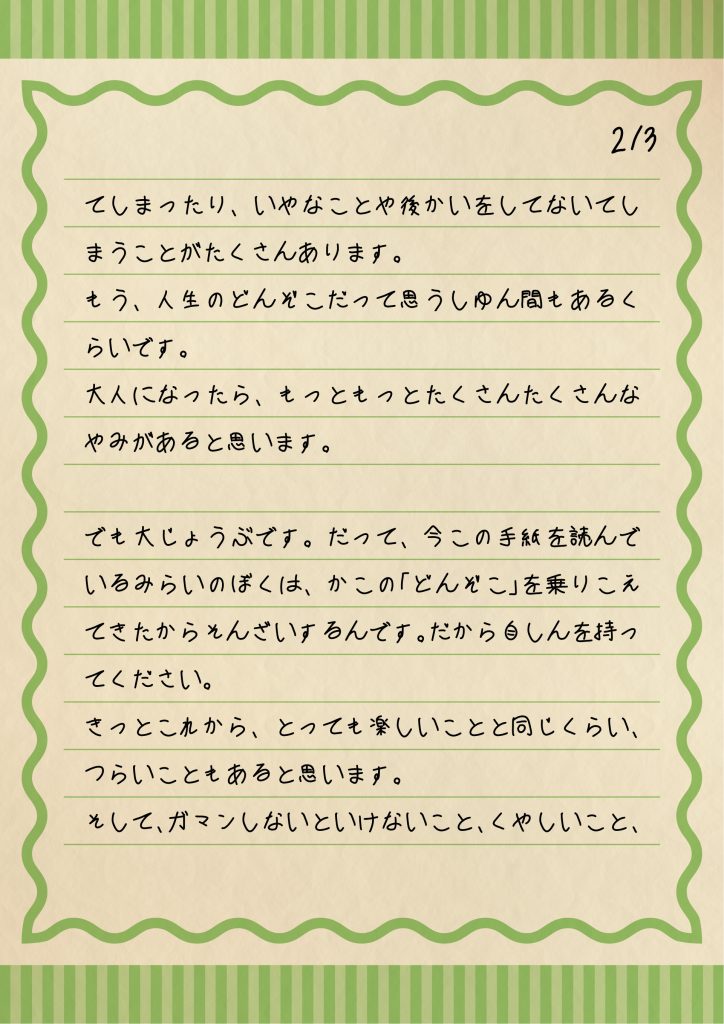 2/3
てしまったり、いやなことや後かいをしてないてし
まうことがたくさんあります。
もう、人生のどんぞこだって思うしゅん間もあるく
らいです。
大人になったら、もっともっとたくさんたくさんな
やみがあると思います。
でも大じょうぶです。だって、今この手紙を読んで
いるみらいのぼくは、かこの「どんぞこ」を乗りこえ
てきたからそんざいするんです。だから自しんを持っ
てください。
きっとこれから、とっても楽しいことと同じくらい、
つらいこともあると思います。
そして、ガマンしないといけないこと、くやしいこと、